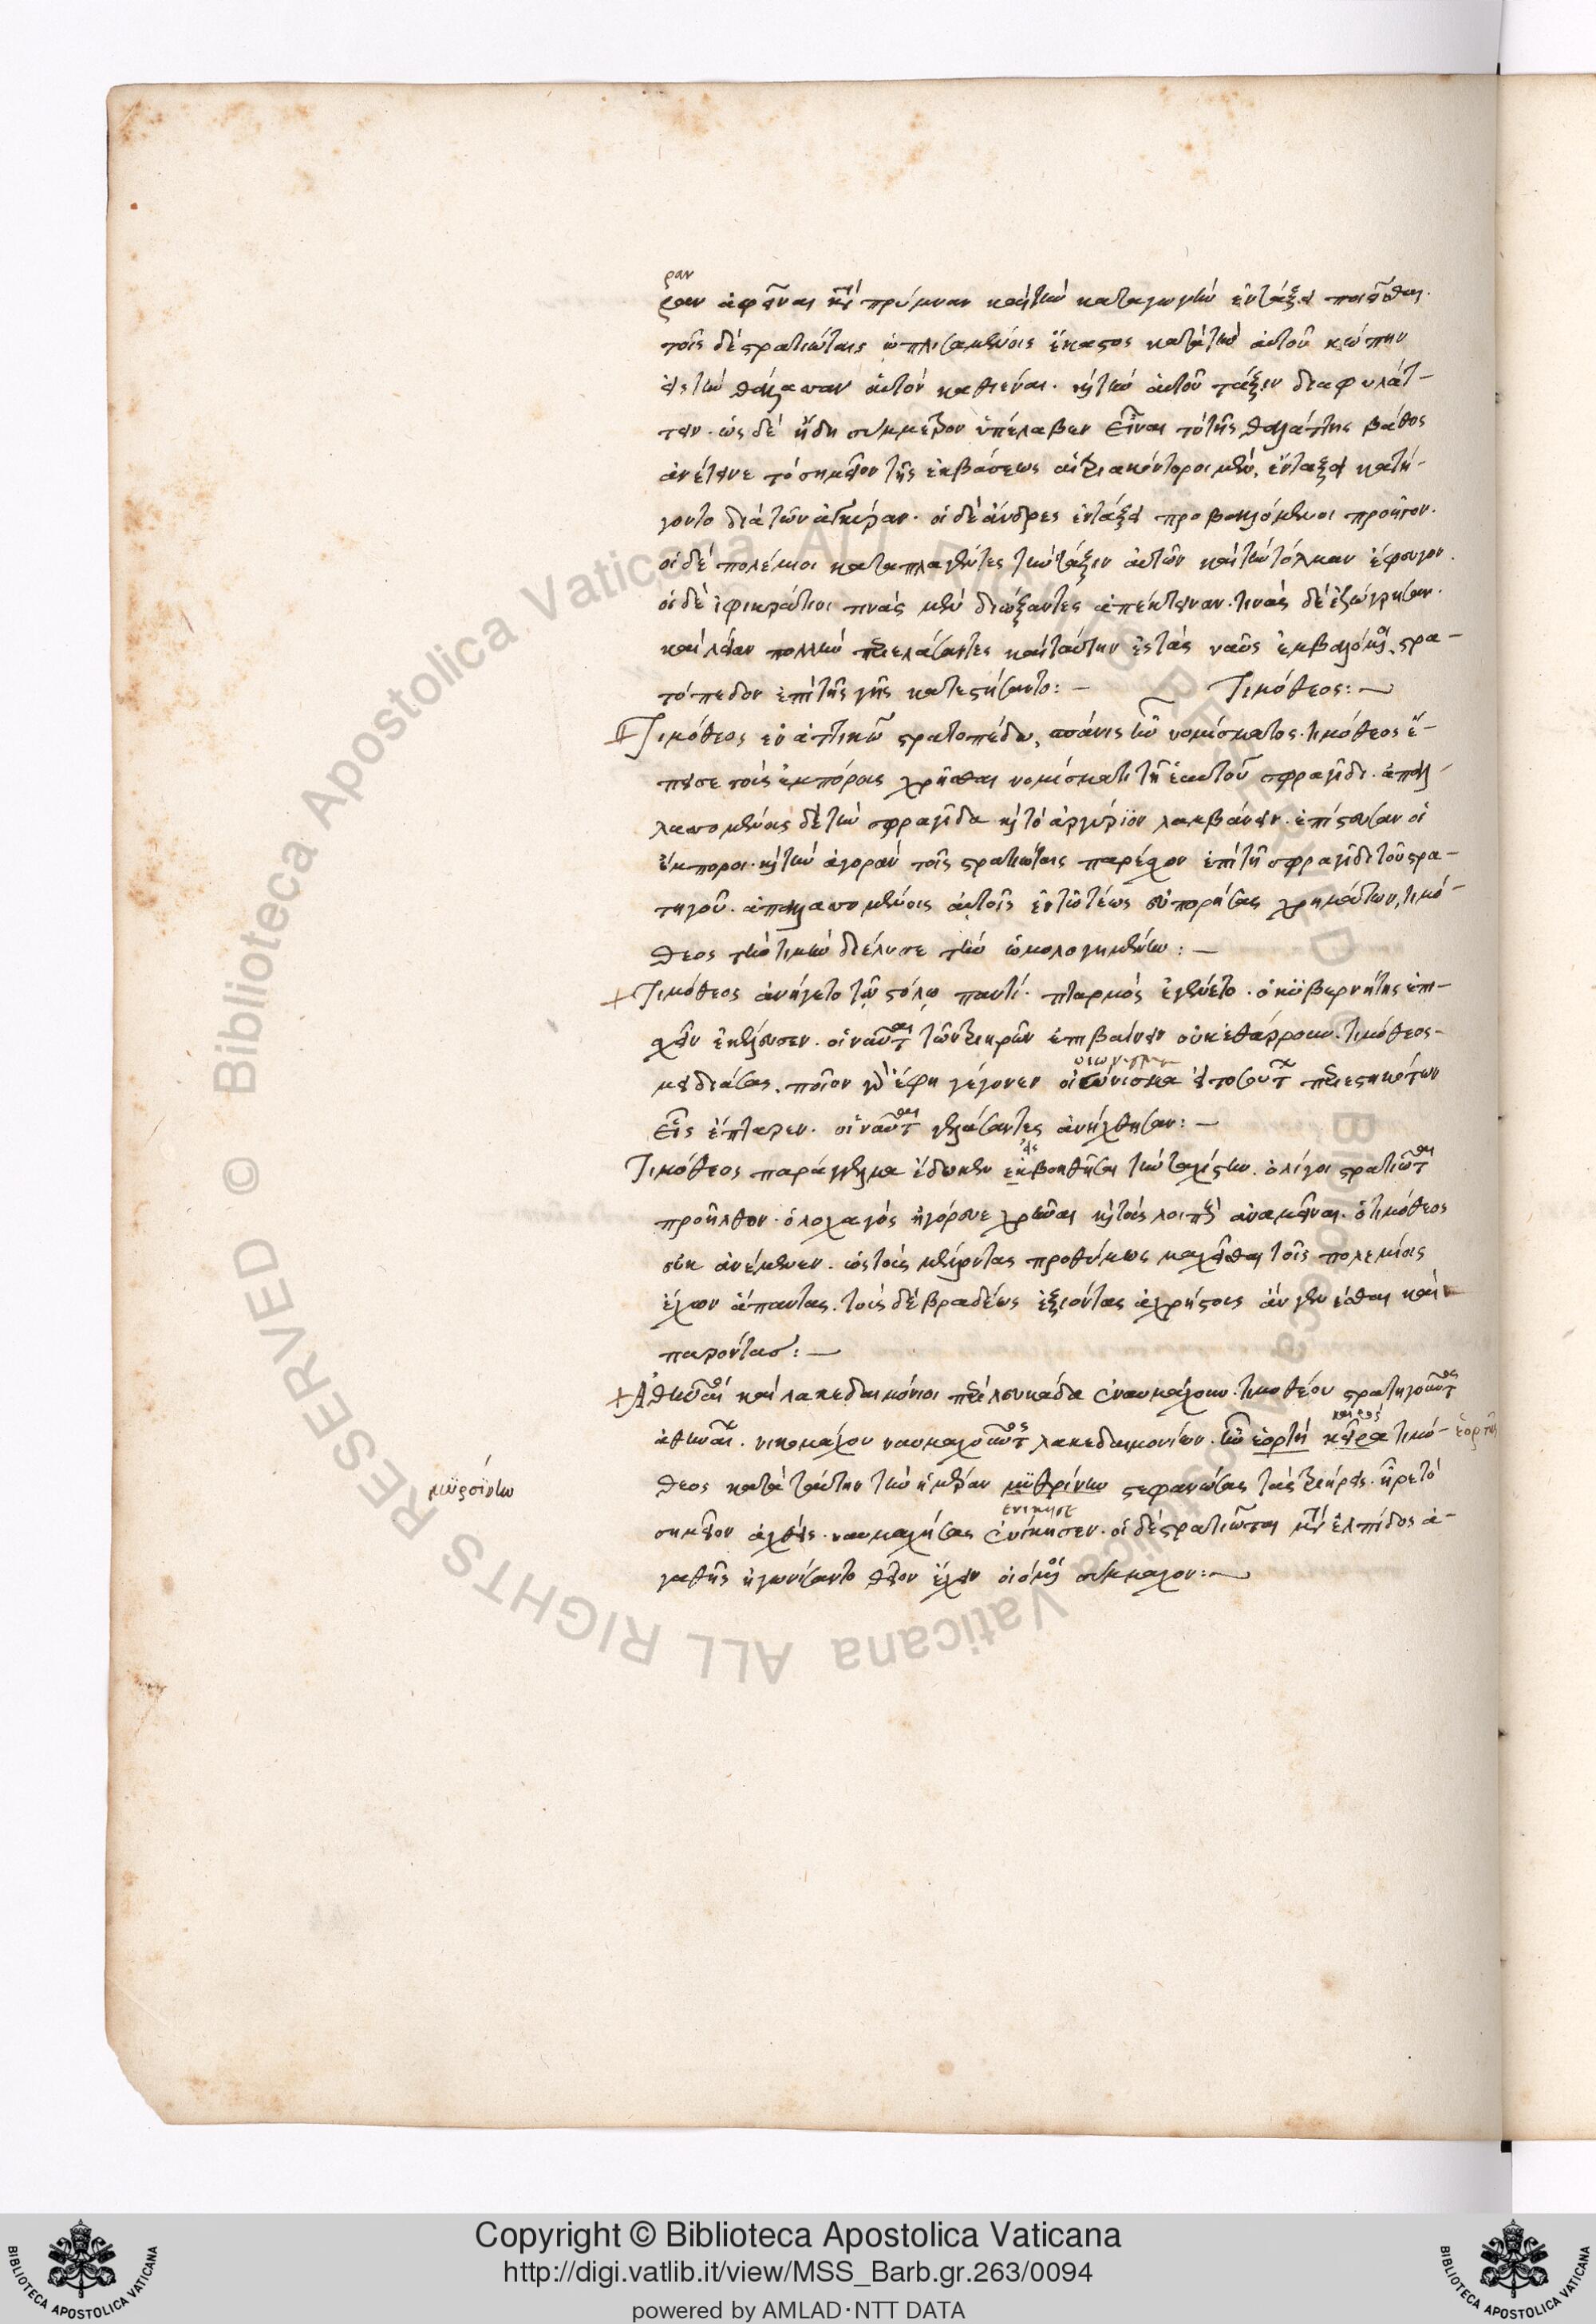 ραν
ραν ἀφεῖναι κατὰ πρύμναν καὶ τὴν καταγωγὴν ἐν τάξει ποιεῖσθαι.
τοῖς δὲ στρατιώταις ὁπλισαμένοις ἕκαστος κατὰ τὴν αὐτοῦ κώπην
εἰς τὴν θάλασσαν αὐτὸν καθιέναι. καὶ τὴν αὐτοῦ τάξιν διαφυλάτ-
τειν. ὡς δὲ ἤδη σύμμετρον ὑπέλαβεν εἶναι τὸ τῆς θαλάττης βάθος
ἀνέτεινε τὸ σημεῖον τῆς ἐκβάσεως αἱ τριακόντοροι μὲν, ἐν τάξει κατή-
γοντο διὰ τῶν ἀγκυρῶν. οἱ δὲ ἄνδρες ἐν τάξει προβαλόμενοι προῆγον.
οἱ δὲ πολέμιοι καταπλαγέντες τὴν τάξιν αὐτῶν καὶ τὴν τόλμαν ἔφευγον.
οἱ δὲ ἰφικράτιοι τινὰς μὲν διώξαντες ἀπέκτειναν. τινὰς δὲ ἐζώγρησαν.
καὶ λείαν πολλὴν περιελάσαντες καὶ ταύτην ἐς τὰς ναῦς ἐμβαλόμενοι, στρα-
τόπεδον ἐπὶ τῆς γῆς κατεστήσαντο: – Τιμόθεος: –
Τιμόθεος ἐν ἀττικῷ στρατοπέδῳ, σπάνις ἦν νομίσματος. τιμόθεος ἔ-
πεισε τοὺς ἐμπόρους χρῆσθαι νομίσματι τῇ ἑαυτοῦ σφραγῖδι. ἀπαλ-
λασσομένους δὲ τὴν σφραγῖδα καὶ τὸ ἀργύριον λαμβάνειν. ἐπίστευσαν οἱ
ἔμποροι. καὶ τὴν ἀγορὰν τοῖς στρατιώταις παρέχον ἐπὶ τῇ σφραγῖδι τοῦ στρα-
τηγοῦ. ἀπαλλασσομένοις αὐτοῖς ἐν τῷ τέως εὐπορήσας χρημάτων, τιμό-
θεος τὴν τιμὴν διέλυσε τὴν ὡμολογημένην: –
Τιμόθεος ἀνήγετο τῷ στόλῳ παντί. πταρμὸς ἐγένετο. ὁ κυβερνήτης ἐπι-
σχεῖν ἐκέλευσεν. οἱ ναῦται τῶν τριηρῶν ἐπιβαίνειν οὐκ ἐθάρρουν. τιμόθεος
μειδιάσας. ποῖον γὰρ ἔφη γέγονεν οἰώνισμα εἰ τοσούτων περιεστηκότων
εἷς ἔπταρεν. οἱ ναῦται γελάσαντες ἀνήχθησαν: –
Τιμόθεος παράγγελμα ἔδωκεν ἐκβοηθῆσαι τὴν ταχίστην. ὀλίγοι στρατιῶται
προῆλθον. ὁ λοχαγὸς ἠγόρευε χρῆναι καὶ τοὺς λοιποὺς ἀναμεῖναι. ὁ τιμόθεος
οὐκ ἀνέμενεν. ὡς τοὺς μέλλοντας προθύμως μαχεῖσθαι τοῖς πολεμίοις
ἔχων ἅπαντας. τοὺς δὲ βραδέως ἐξιόντας ἀχρήστους ἂν γενέσθαι καὶ
παρόντας: –
Ἀθηναῖοι καὶ λακεδαιμόνιοι περὶ λευκάδα ἐναυμάχουν. τιμοθέου στρατηγοῦντος
ἀθηναίων. νικομάχου ναυμαχοῦντος λακεδαιμονίων. ἦν ἑορτὴ κείρα τιμό- ἑορτῆς
θεος κατὰ ταύτην τὴν ἡμέραν μυθρίνην στεφανώσας τὰς τριήρεις. ᾖρε τὸ
μυρσίνην
σημεῖον ἀχθεὶς. ναυμαχήσας ἐνίκησεν. οἱ δὲ στρατιῶται μετ' ἐλπίδος ἀ-
ἐνίκησε
γαθῆς ἠγωνίσαντο θεῖον ἔχειν οἰόμενοι σύμμαχον: –
Copyright © Biblioteca Apostolica Vaticana
http://digi.vatlib.it/view/MSS_Barb.gr.263/0094
powered by AMLAD·NTT DATA
BIBLIOTECA APOSTOLICA VATICANA
BIBLIOTECA APOSTOLICA VATICANA
© Biblioteca Apostolica Vaticana ALL RIGHTS RESERVED
© Biblioteca Apostolica Vaticana ALL RIGHTS RESERVED